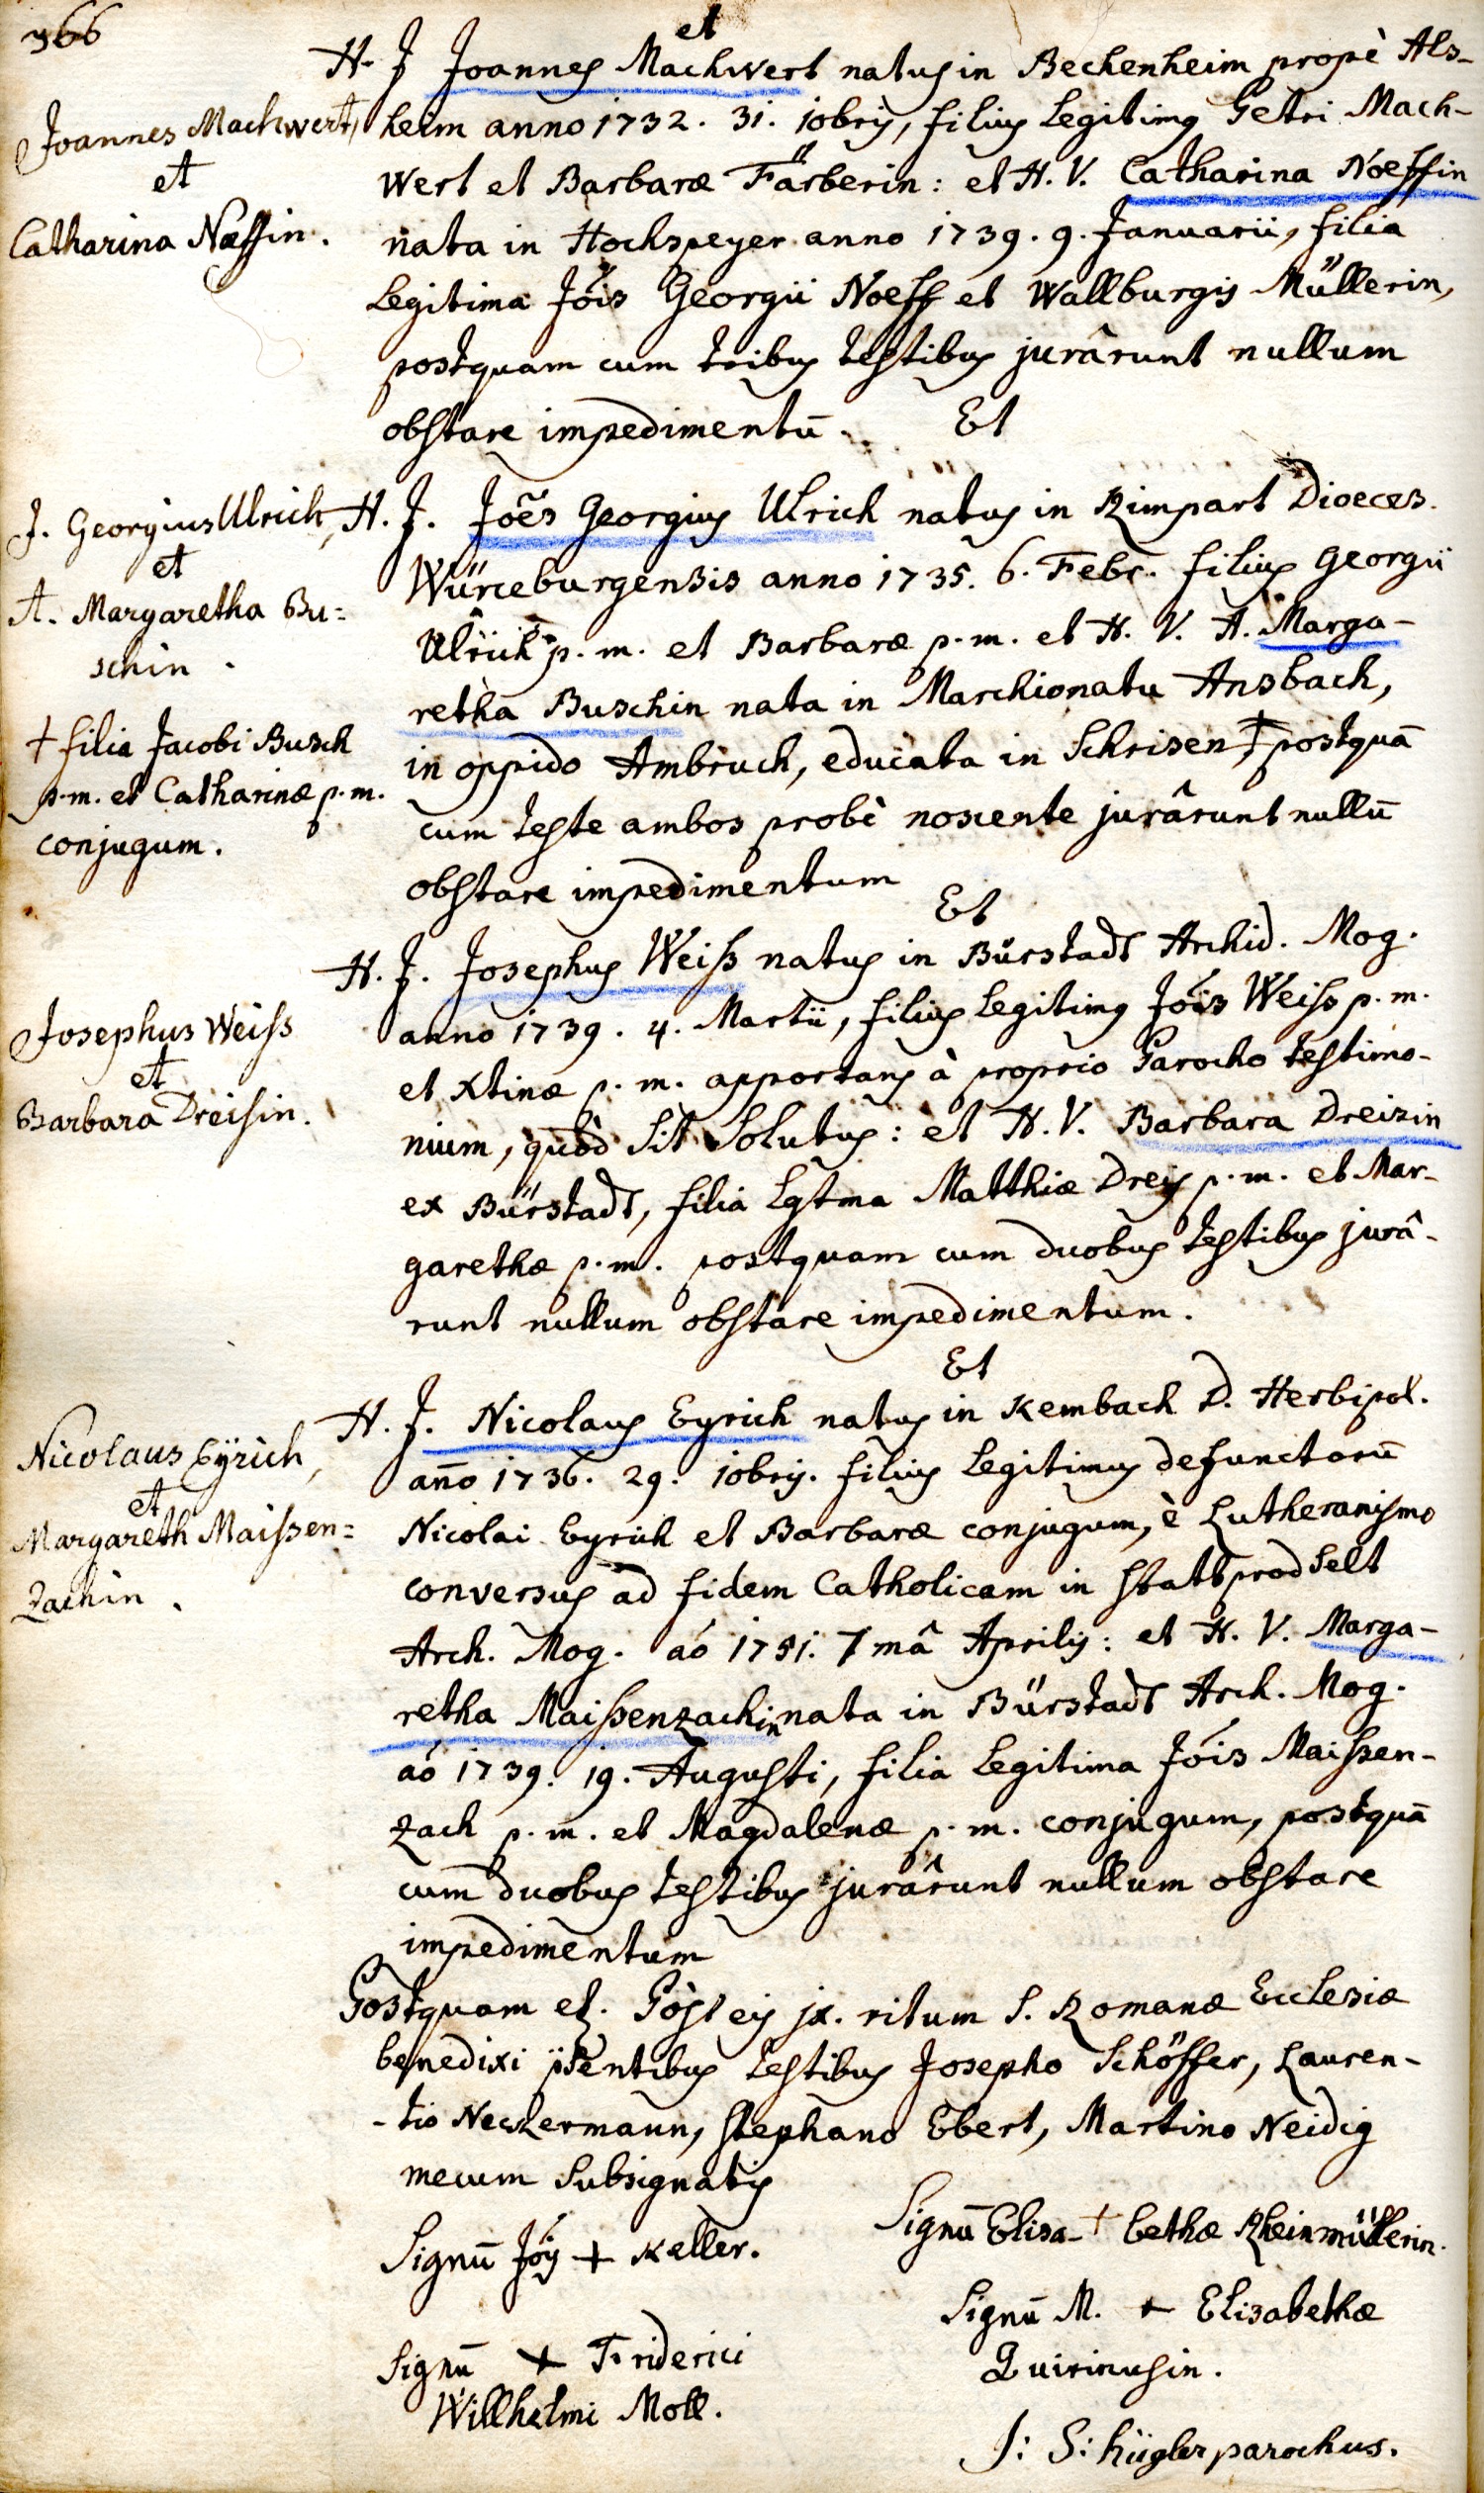 366
et
H. J Joannes Machwert natus in Bechenheim propè Als-
Joannes Machwert,
et
Catharina Næssin.
heim anno 1732. 31. 10bris, filius legitimus Petri Mach-
wert et Barbaræ Färberin: et H. V. Catharina Noessin
nata in Hochspeyer anno 1739. 9. Januarii, filia
legitima Jois Georgii Noess et Wallburgis Müllerin,
postquam cum tribus testibus jurârunt nullum
obstare impedimentū.
Et
J. Georgius Ulrich,
et
A. Margaretha Bu=
schin.
† filia Jacobi Busch
p.m. et Catharinæ p.m.
conjugum.
H. J. Joẽs Georgius Ulrich natus in Rimpart Dioeces.
Würceburgensis anno 1735. 6. Febr. filius Georgii
Ulrich p.m. et Barbaræ p.m. et H. V. A. Marga-
retha Buschin nata in Marchionatu Ansbach,
in oppido Ambruch, educata in Schrisen, † postquā
cum teste ambos probè noscente jurârunt nullū
obstare impedimentum
Et
Josephus Weiss
et
Barbara Dreisin.
H. J. Josephus Weiß natus in Bürstadt Archid. Mog.
anno 1739. 4. Martii, filius legitimus Jóis Weiss p.m.
et Xtinæ p.m. apportans à proprio Parocho testimo-
nium, quòd sit solutus: et H. V. Barbara Dreisin
ex Bürstadt, filia lgtma Matthiæ Dreis p.m. et Mar-
garethæ p.m. postquam cum duobus testibus jurâ-
runt nullum obstare impedimentum.
Et
Nicolaus Eÿrich,
et
Margareth Maissen=
zachin.
H. J. Nicolaus Eyrich natus in Kembach D. Herbipol.
año 1736. 29. 10bris. filius legitimus defunctorū
Nicolai Eyrich et Barbaræ conjugum, è Lutheranismo
conversus ad fidem Catholicam in stattprodselt
Arch. Mog. aó 1751. 7mâ Aprilis: et H. V. Marga-
retha Maissenzachin nata in Bürstadt Arch. Mog.
aó 1739. 19. Augusti, filia legitima Jóis Maissen-
zach p.m. et Magdalenæ p.m. conjugum, postquā
cum duobus testibus jurârunt nullum obstare
impedimentum
Postquam et. Pòst eis jx. ritum S. Romanæ Ecclesiæ
benedixi p̈sentibus testibus Josepho Schöffer, Lauren-
-tio Neckermann, Stephano Ebert, Martino Neidig
mecum subsignatis
Signū Jóis + Keller.
Signū Elisa- + bethæ Rheinmüllerin.
Signū M. + Elisabethæ
Quirinusin.
Signū + Friderici
Willhelmi Moll.
J: S: hügler parochus.